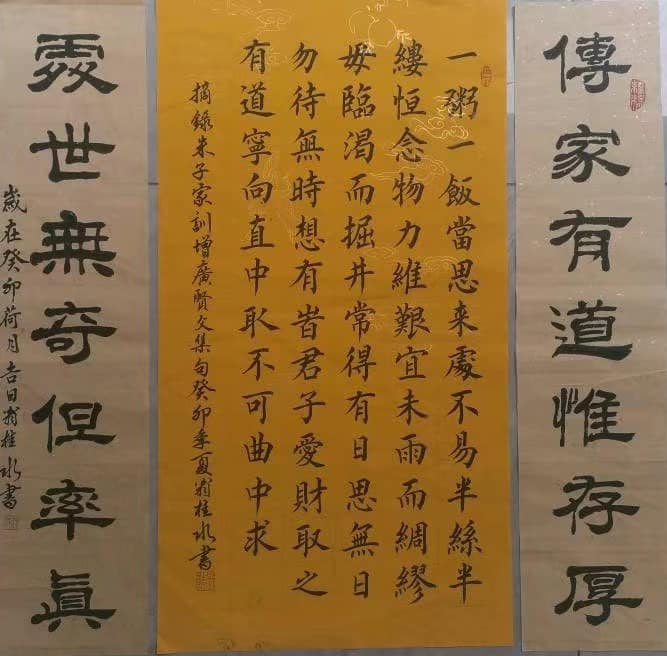 傳家有道惟存厚
一粥一飯當思来處不易半絲半
縷恒念物力維艱宜未雨而綢繆
毋臨渴而掘井常得有日思無日
勿待無時想有旹君子愛財取之
有道寧向直中取不可曲中求
摘錄朱子家訓增廣賢文集句癸卯季夏翁桂水書
處世無奇但率真
歲在癸卯荷月吉日翁桂水書